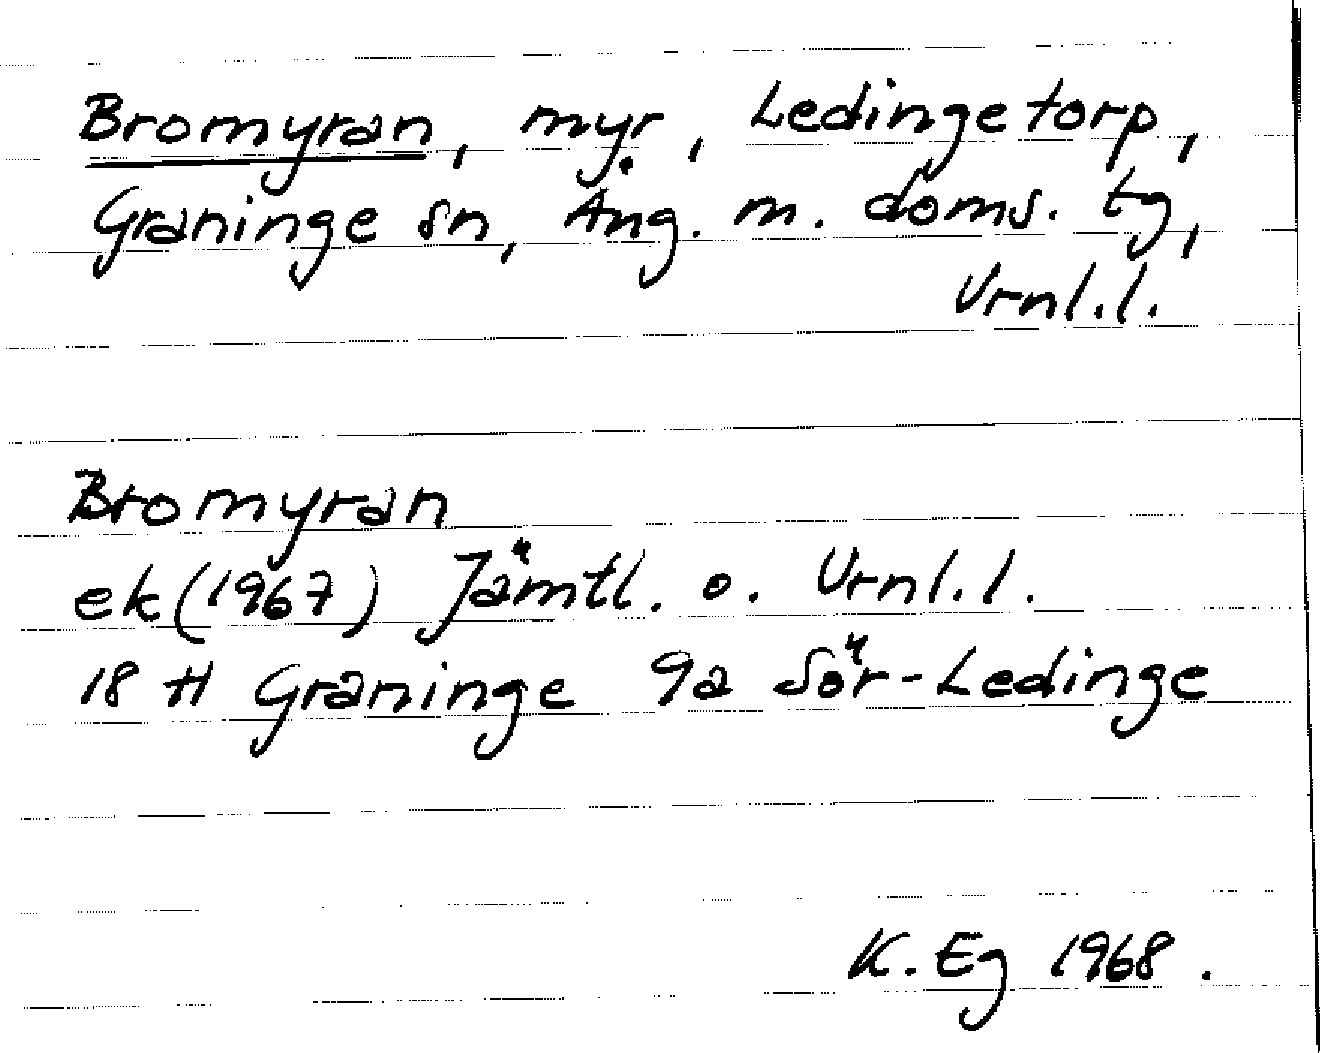 Bromyran, myr, Ledingetorp,
Graninge sn, Ång. m. doms. tg,
Vrnl.l.
Bromyran
ek (1967) Jämtl. o. Vrnl.l.
18 H Graninge 9a Sör-Ledinge
K. Eg 1968.